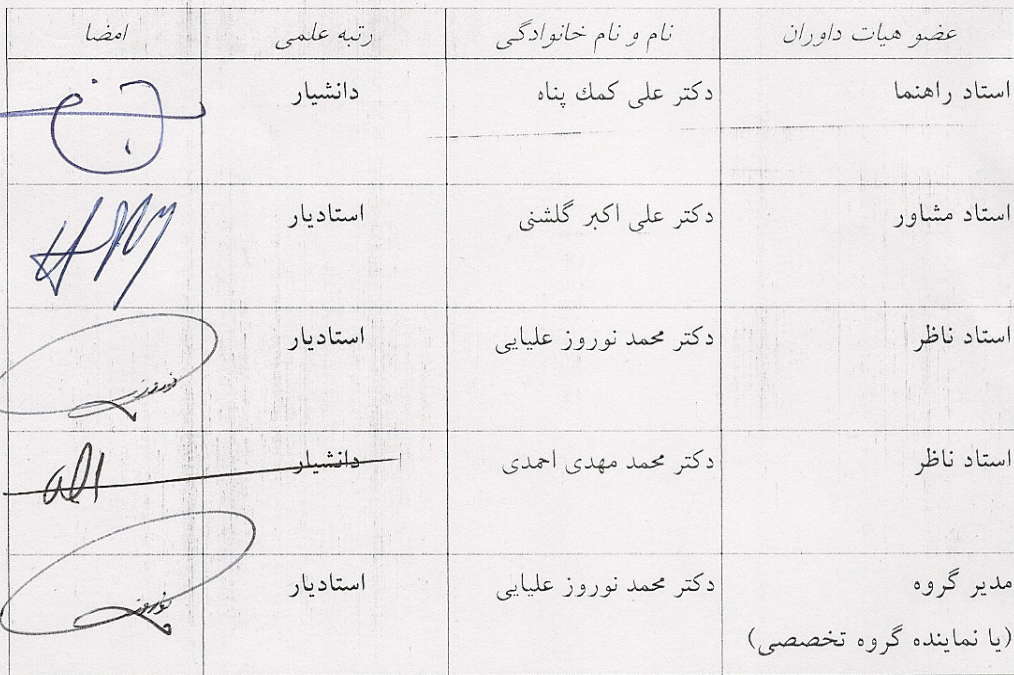 عضو هیات داوران نام و نام خانوادگی رتبه علمی امضا
استاد راهنما دکتر علی کمك پناه دانشیار
استاد مشاور دکتر علی اکبر گلشنی استادیار
استاد ناظر دکتر محمد نوروز علیایی استادیار
نوروز
استاد ناظر دکتر محمد مهدی احمدی دانشیار
مدیر گروه دکتر محمد نوروز علیایی استادیار
نوروز
(یا نماینده گروه تخصصی)